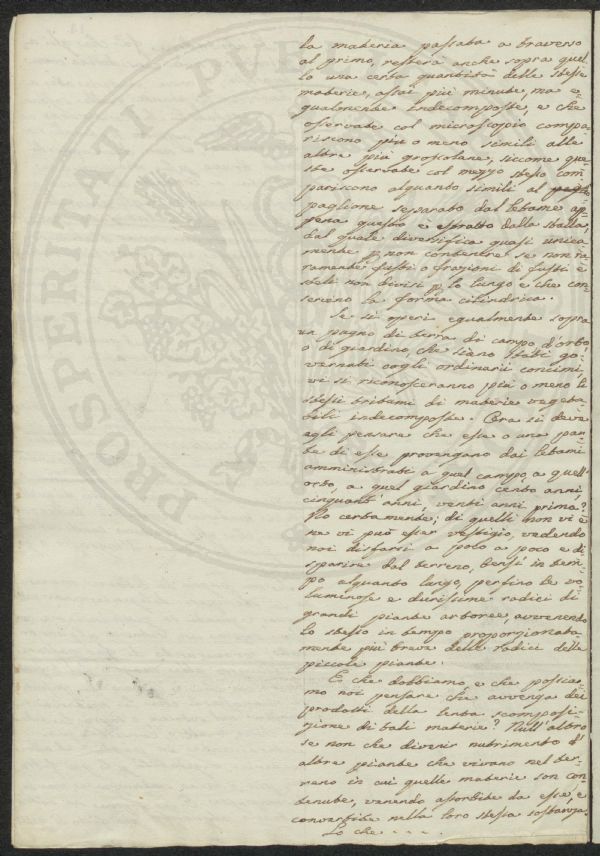 la materia passata a traverso
al primo, resterà anche sopra quel-
lo una certa quantità delle stesse
materie, assai più minute, ma e-
gualmente indecomposte, e che
osservate col microscopio compa-
riscono più o meno simili alle
altre più grossolane, siccome que-
ste osservate col mezzo stesso com-
pariscono alquanto simili al
paglione separato dal letame ap-
pena questo è estratto dalla stalla,
dal quale diversifica quasi unica-
mente p non contenere se non ra-
ramente fusti o frazioni di fusti e
steli non divisi p lo lungo e che con-
servino la forma cilindrica.
Se si operi egualmente sopra
un pugno di terra di campo, d'orto
o di giardino, che siano stati go-
vernati cogli ordinarii concimi,
vi si riconosceranno più o meno li
stessi tritumi di materie vegeta-
bili indecomposte. Ora si deve
egli pensare che esse o una par-
te di esse provengano dai letami
amministrati a quel campo, a quell'
orto, a quel giardino cento anni,
cinquant'anni, venti anni prima?
No certamente; di quelli non vi è
ne vi può esser vestigio, vedendo
noi disfarsi a poco a poco e di-
sparire dal terreno, bensì in tem-
po alquanto lungo, perfino le vo-
luminose e durissime radici di
grandi piante arboree, avvenendo
lo stesso in tempo proporzionata-
mente più breve delle radici delle
piccole piante.
E che dobbiamo, e che possia-
mo noi pensare che avvenga dei
prodotti della lenta scomposi-
zione di tali materie? Null'altro
se non che divenir nutrimento d'
altre piante che vivano nel ter-
reno in cui quelle materie son con-
tenute, venendo assorbite da esse, e
convertite nella loro stessa sostanza.
Lo che - - - -
PROSPERITATI PVB